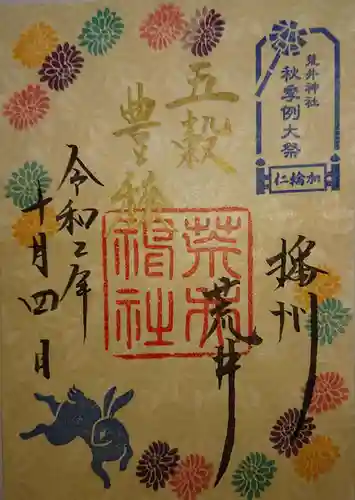 荒井神社
秋季例大祭
仁輪加
五穀
豊穣
播州
荒井
荒井
神社
令和二年
十月四日